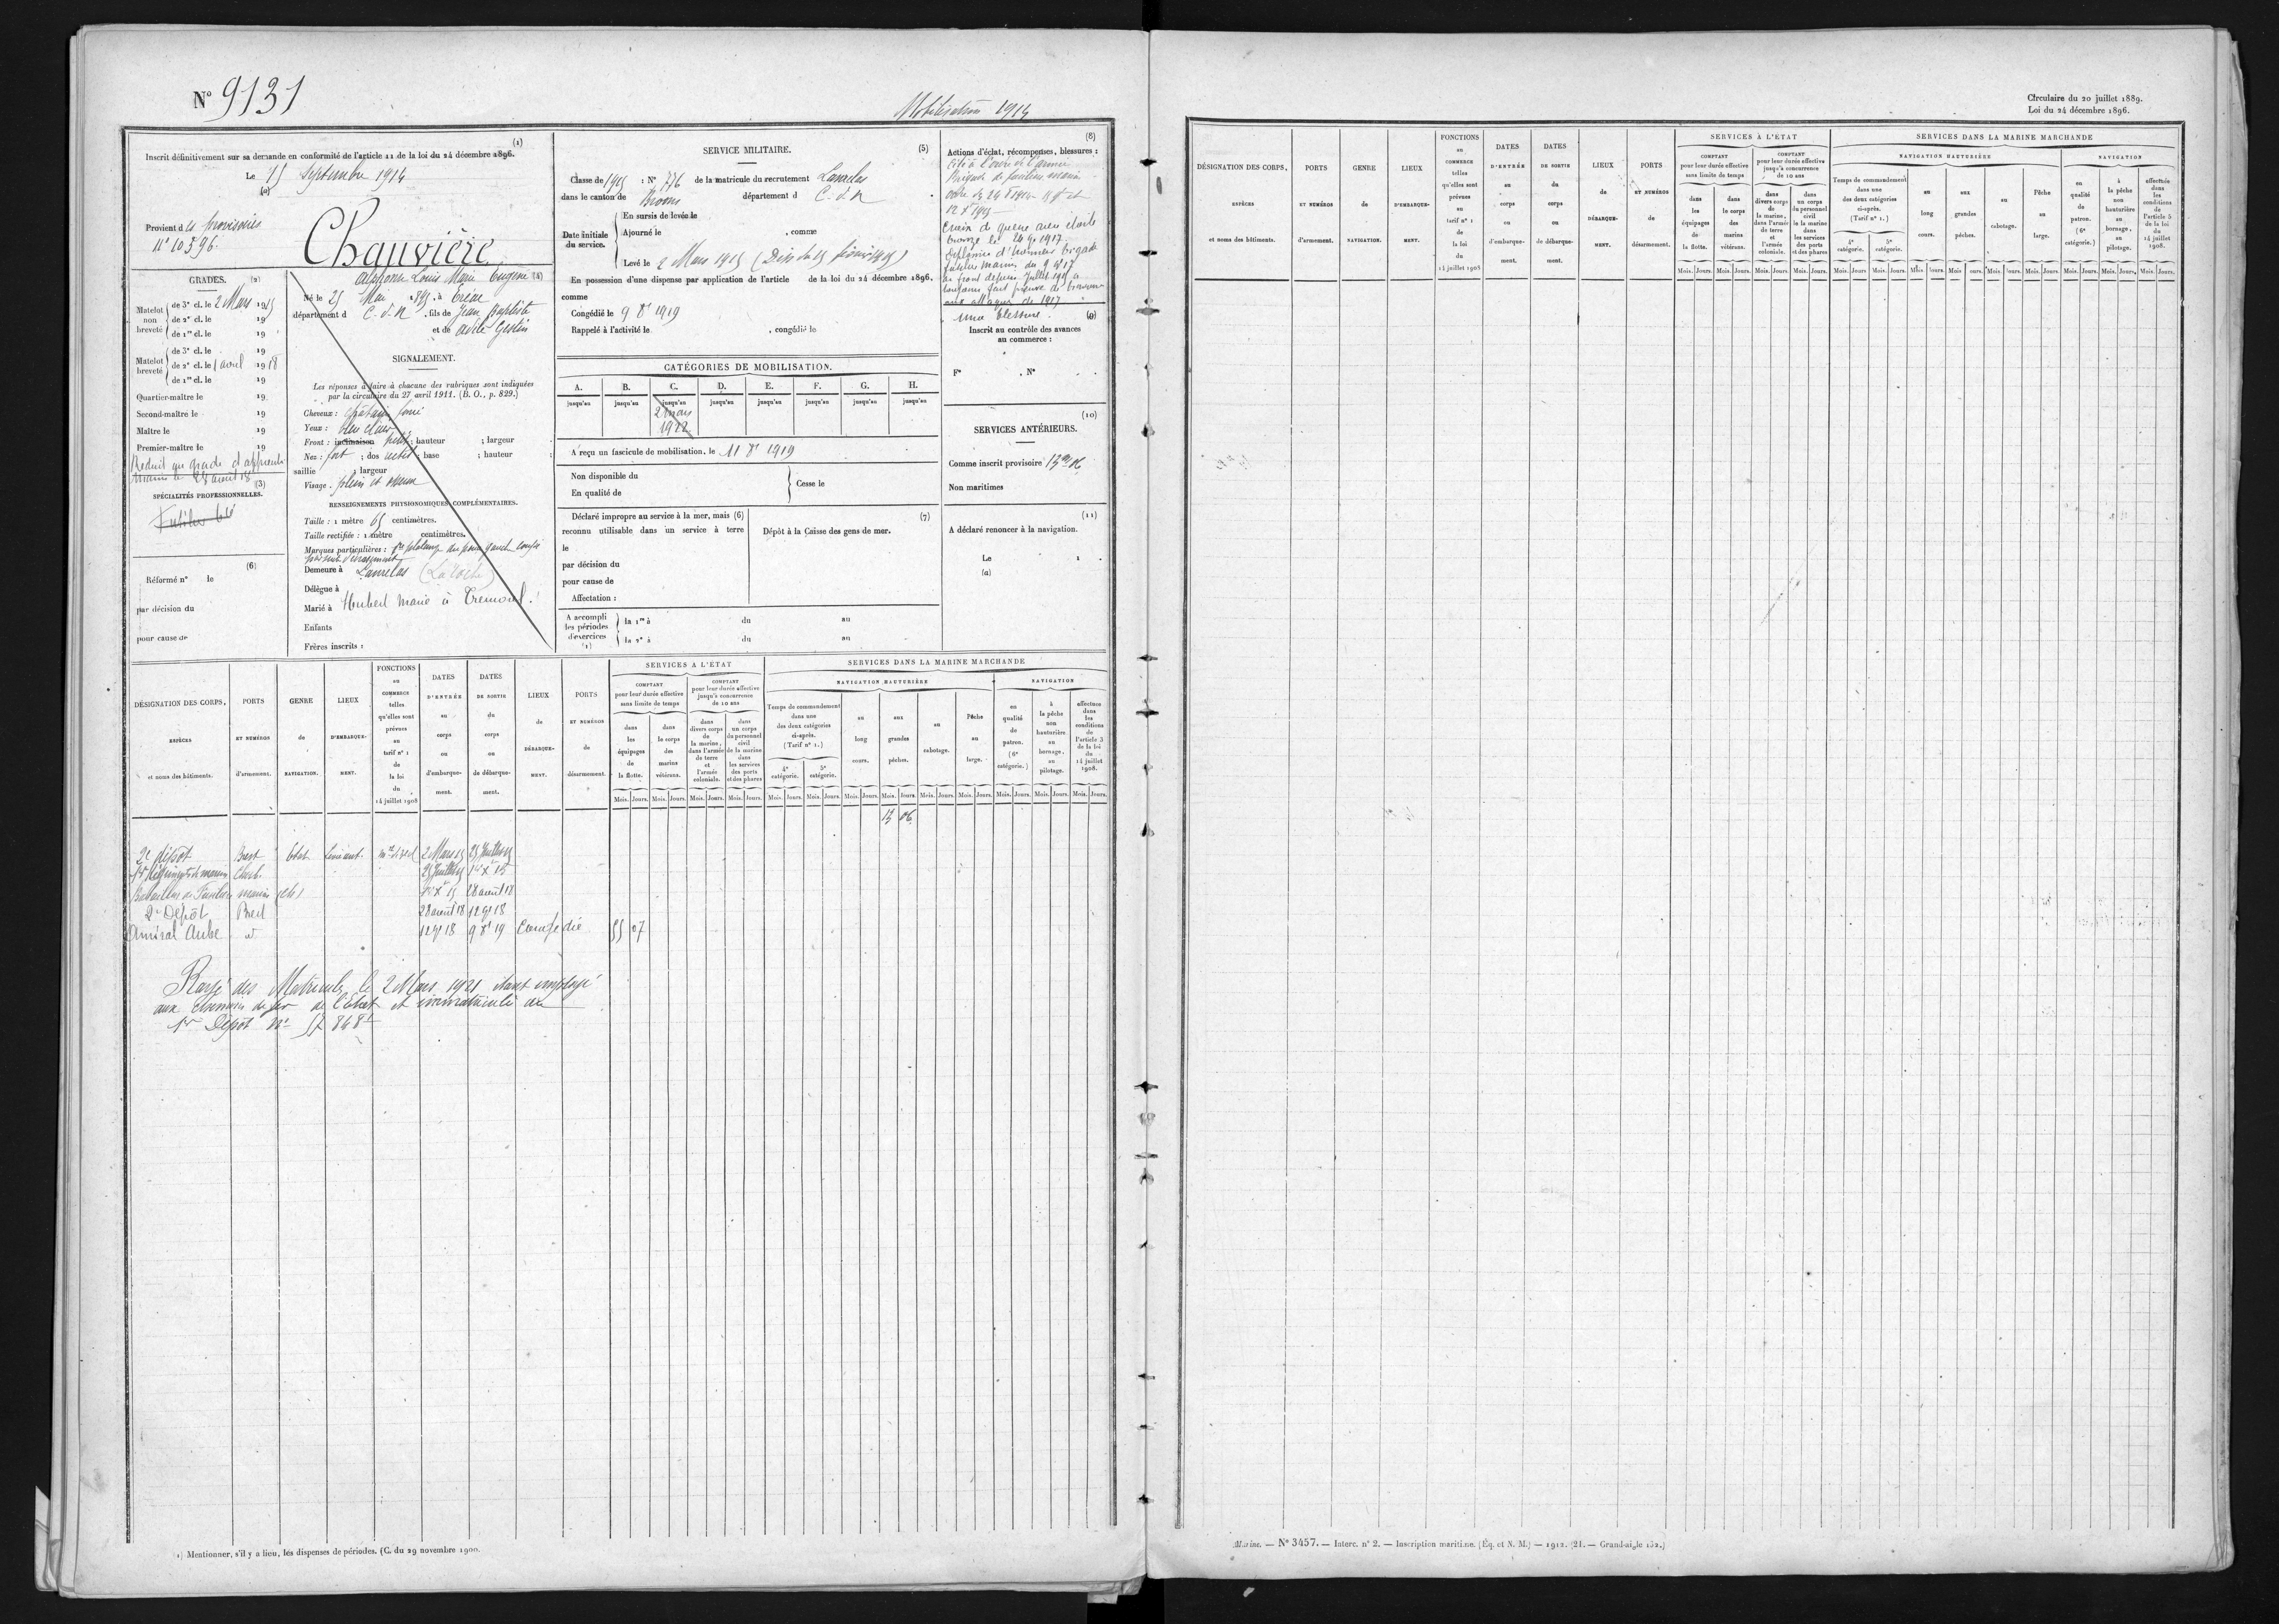 N° 9131
Mobilisation 1914
(1)
Inscrit définitivement sur sa demande en conformité de l'article 11 de la loi du 24 décembre 1896.
Le 15 Septembre 1914
(a)
Provient des provisoires
N° 10596.
Chauvière
Alphonse Louis Marie Eugène (4)
Né le 25 Mai 1895, à Tréal
département d C. d. N, fils de Jean Baptiste
et de Gestin
GRADES. (2)
Matelot non breveté
de 3e cl. le 2 Mars 1915
de 2e cl. le 19
de 1re cl. le 19
Matelot breveté
de 3e cl. le 19
de 2e cl. le 1 avril 1918
de 1re cl. le 19
Quartier-maître le 19
Second-maître le 19
Maître le 19
Premier-maître le 19
Réduit au grade d'apprenti
marin le 28 août 18
(3)
SPÉCIALITÉS PROFESSIONNELLES.
Fusilier bté
(6)
Réformé n° le
par décision du
pour cause de
SIGNALEMENT.
Les réponses à faire à chacune des rubriques sont indiquées
par la circulaire du 27 avril 1911. (B. O., p. 829.)
Cheveux : châtain foncé
Yeux : bleu clair
Front : inclinaison petit ; hauteur ; largeur
Nez : fort ; dos ; base ; hauteur ;
saillie ; largeur
Visage : plein et
RENSEIGNEMENTS PHYSIONOMIQUES COMPLÉMENTAIRES.
Taille : 1 mètre 65 centimètres.
Taille rectifiée : 1 mètre centimètres.
Marques particulières : phalange du pouce gauche coupée
Demeure à Lanrelas (La roche)
Délègue à
Marié à Hubert Marie à Trémorel.
Enfants
Frères inscrits :
SERVICE MILITAIRE. (5)
Classe de 1915 : N° 776 de la matricule du recrutement Lanrelas
dans le canton de Broons département d C. d. N
Date initiale du service.
En sursis de levée le
Ajourné le , comme
Levé le 2 Mars 1915
En possession d'une dispense par application de l'article de la loi du 24 décembre 1896.
comme
Congédié le 9 8bre 1919
Rappelé à l'activité le , congédié le
CATÉGORIES DE MOBILISATION.
A. B. C. D. E. F. G. H.
jusqu'au jusqu'au jusqu'au jusqu'au jusqu'au jusqu'au jusqu'au jusqu'au
2 mars
1922
A reçu un fascicule de mobilisation, le 11 8bre 1919
Non disponible du
En qualité de
Cesse le
Déclaré impropre au service à la mer, mais (6)
reconnu utilisable dans un service à terre
le
par décision du
pour cause de
Affectation :
(7)
Dépôt à la Caisse des gens de mer.
A accompli les périodes d'exercices (1)
la 1re à du au
la 2e à du au
(8)
Actions d'éclat, récompenses, blessures :
Cité à l'ordre de l'armée
Brigade de fusiliers marins
Croix de guerre avec étoile
bronze le 24 9bre 1917
une blessure.
(9)
Inscrit au contrôle des avances
au commerce :
F° , N°
(10)
SERVICES ANTÉRIEURS.
Comme inscrit provisoire 13m 06
Non maritimes
(11)
A déclaré renoncer à la navigation.
Le 1
(a)
DÉSIGNATION DES CORPS, ESPÈCES et noms des bâtiments.
PORTS ET NUMÉROS d'armement.
GENRE de NAVIGATION.
LIEUX D'EMBARQUEMENT.
FONCTIONS au COMMERCE telles qu'elles sont prévues au tarif n° 1 de la loi du 14 juillet 1908
DATES D'ENTRÉE au corps ou d'embarquement.
DATES DE SORTIE du corps ou de débarquement.
LIEUX de DÉBARQUEMENT.
PORTS ET NUMÉROS de désarmement.
SERVICES A L'ETAT
COMPTANT pour leur durée effective sans limite de temps
dans les équipages de la flotte.
dans le corps des marins vétérans.
COMPTANT pour leur durée effective jusqu'à concurrence de 10 ans
dans divers corps de la marine, dans l'armée de terre et l'armée coloniale.
dans un corps du personnel civil de la marine dans les services des ports et des phares
SERVICES DANS LA MARINE MARCHANDE
NAVIGATION HAUTURIÈRE
Temps de commandement dans une des deux catégories ci-après. (Tarif n° 1.)
4e catégorie. 5e catégorie.
au long cours.
aux grandes pêches.
au cabotage.
Pêche au large.
NAVIGATION
en qualité de patron. (6e catégorie.)
à la pêche non hauturière au bornage, au pilotage.
effectuée dans les conditions de l'article 3 de la loi du 14 juillet 1908.
Mois. Jours.
13 06
2e dépôt Brest Etat 2 Mars 15 25 Juillet 15
1er Régiment de marins Cherb. 25 Juillet 15 1er Xbre 15
Bataillon de Fusiliers marins 1er Xbre 15 28 août 18
2e Dépôt Brest 28 août 18 12 9bre 18
Amiral Aube d° 12 9bre 18 9 8bre 19 Congédié 55 07
Rayé des Matricules le 2 Mars 1921 étant employé
aux chemins de fer de l'Etat et immatriculé au
1er Dépôt N° 57 848-1
1) Mentionner, s'il y a lieu, les dispenses de périodes. (C. du 29 novembre 1900.
Circulaire du 20 juillet 1889.
Loi du 24 décembre 1896.
DÉSIGNATION DES CORPS, ESPÈCES et noms des bâtiments.
PORTS ET NUMÉROS d'armement.
GENRE de NAVIGATION.
LIEUX D'EMBARQUEMENT.
FONCTIONS au COMMERCE telles qu'elles sont prévues au tarif n° 1 de la loi du 14 juillet 1908
DATES D'ENTRÉE au corps ou d'embarquement.
DATES DE SORTIE du corps ou de débarquement.
LIEUX de DÉBARQUEMENT.
PORTS ET NUMÉROS de désarmement.
SERVICES À L'ETAT
COMPTANT pour leur durée effective sans limite de temps
dans les équipages de la flotte.
dans le corps des marins vétérans.
COMPTANT pour leur durée effective jusqu'à concurrence de 10 ans
dans divers corps de la marine, dans l'armée de terre et l'armée coloniale.
dans un corps du personnel civil de la marine dans les services des ports et des phares
SERVICES DANS LA MARINE MARCHANDE
NAVIGATION HAUTURIÈRE
Temps de commandement dans une des deux catégories ci-après. (Tarif n° 1.)
4e catégorie. 5e catégorie.
au long cours.
aux grandes pêches.
au cabotage.
Pêche au large.
NAVIGATION
en qualité de patron. (6e catégorie.)
à la pêche non hauturière au bornage, au pilotage.
effectuée dans les conditions de l'article 3 de la loi du 14 juillet 1908.
Mois. Jours.
Marine. — N° 3457. — Interc. n° 2. — Inscription maritime. (Éq. et N. M.) — 1912. (21. — Grand-aigle 152.)